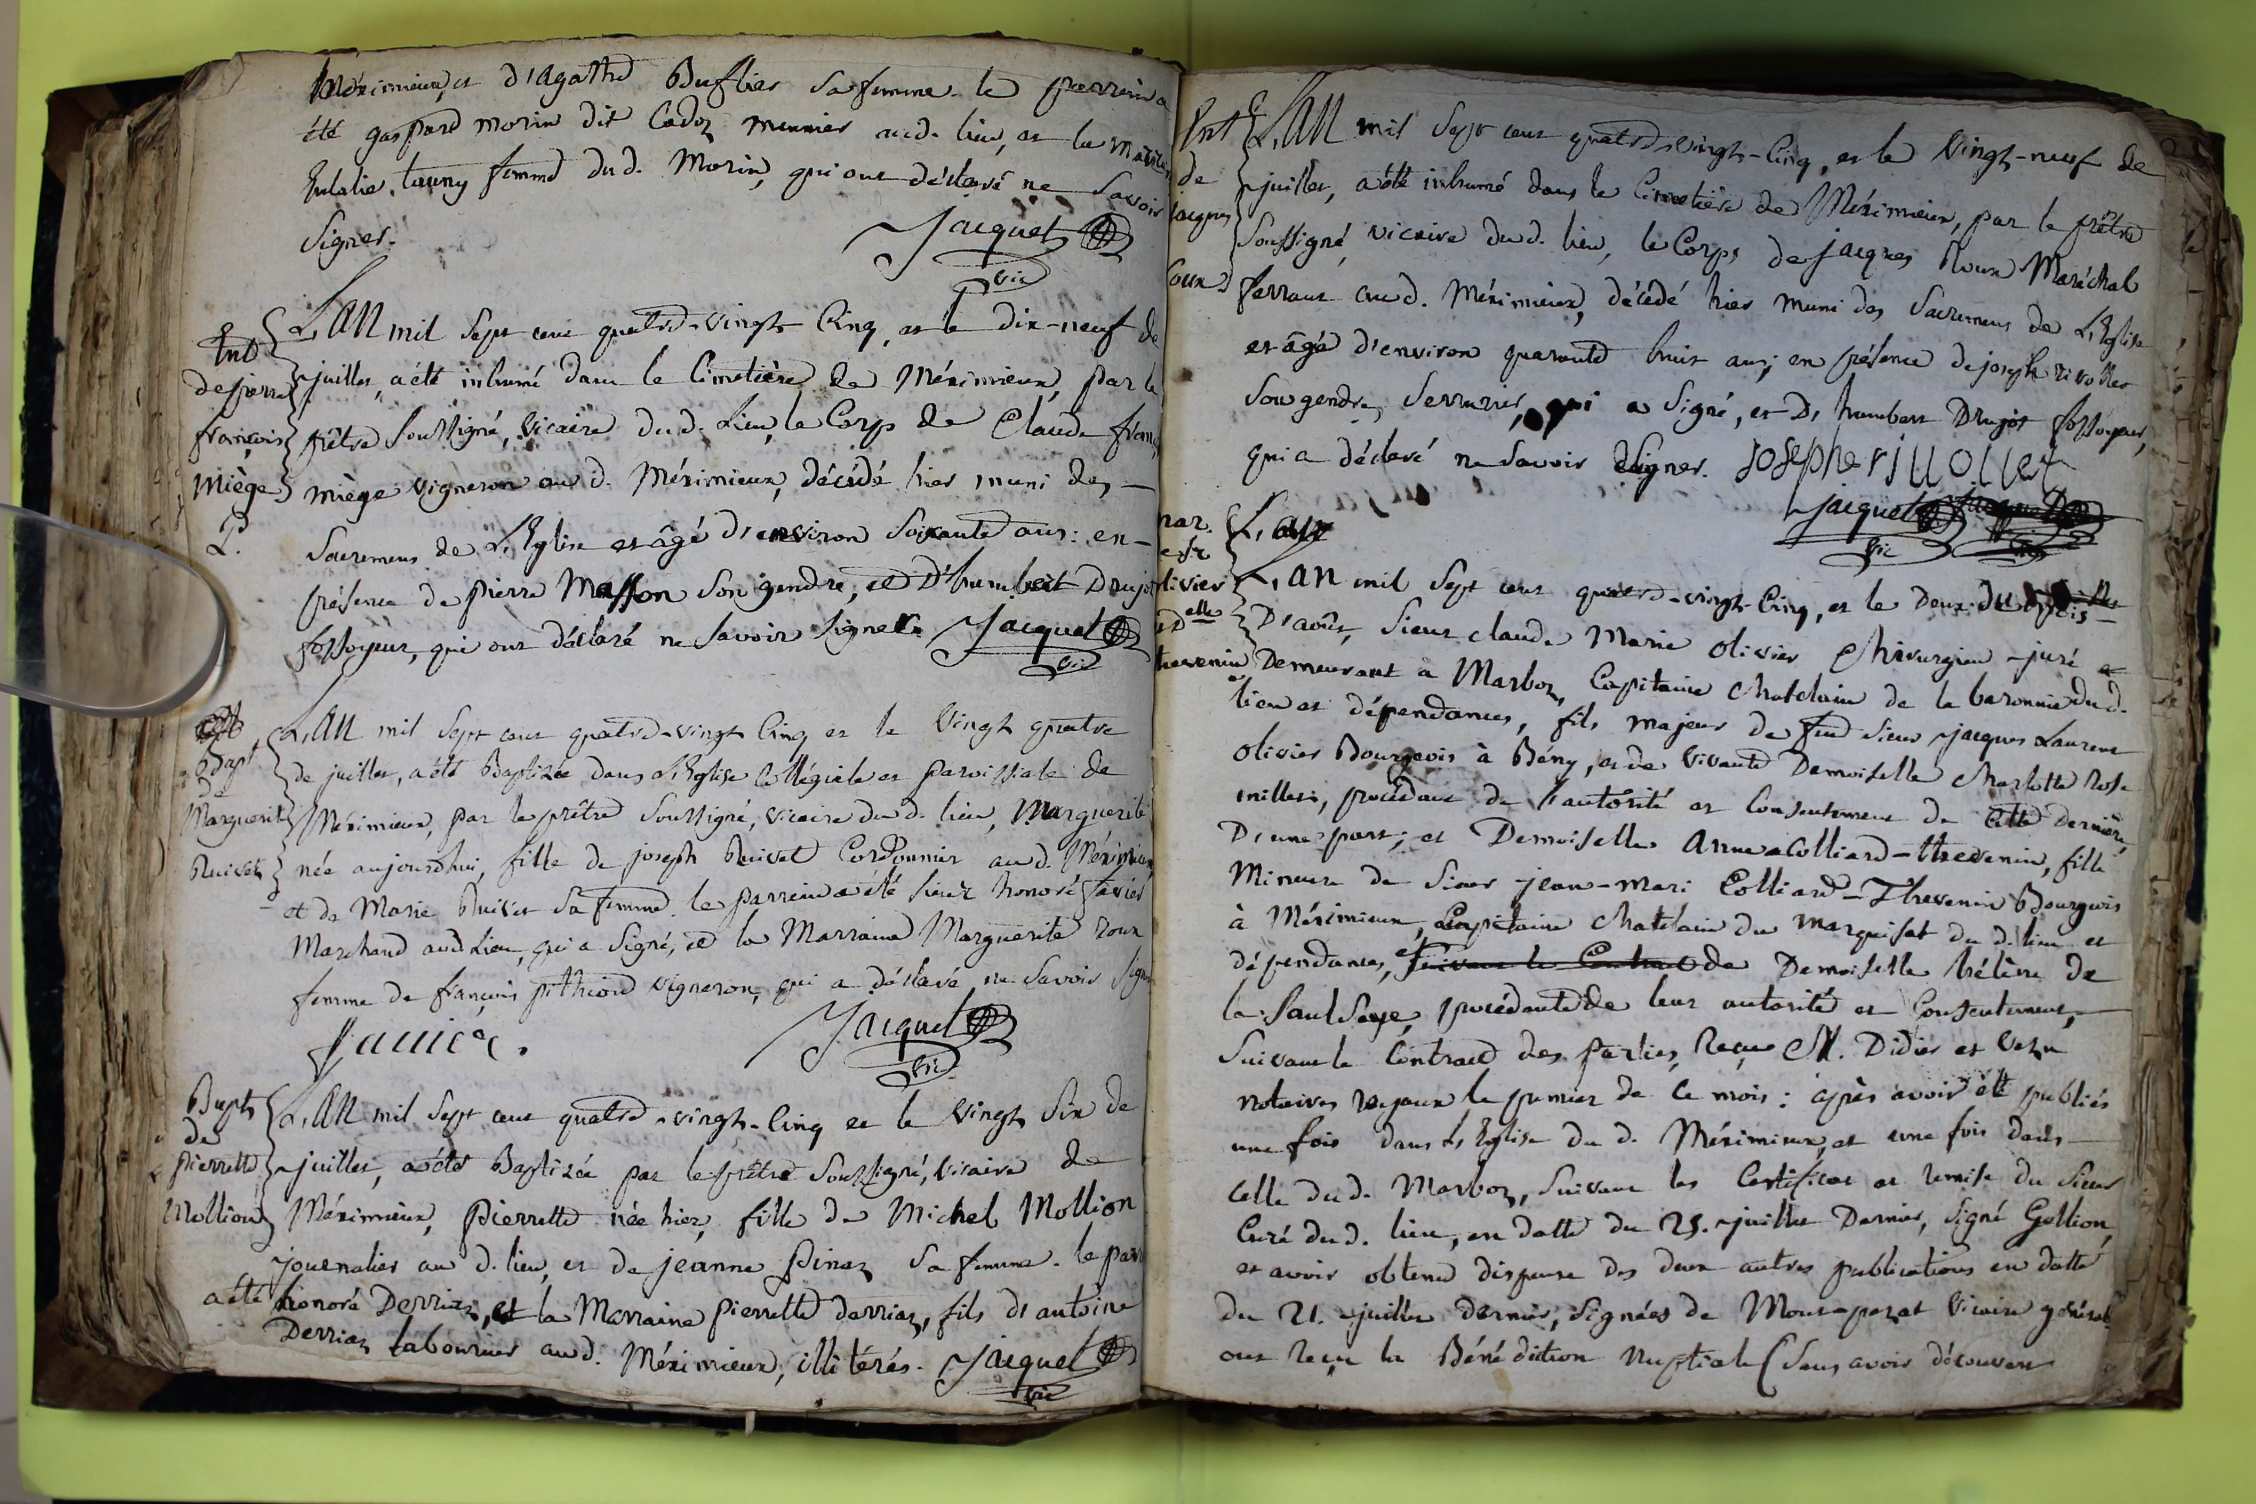 Méximieux, et d'agathe Buffier sa femme. le parrein a
été gaspard morin dit Cadoz meunier aud. lieu, et la marrein
Eulalie tauny femme dud. Morin, qui ont déclaré ne savoir
signer.
Jacquet
vic
Ent
de pierre
françois
miège
P.
L'an mil sept cent quatre-vingt cinq, et le dix-neuf de
juillet, a été inhumé dans le Cimetière de Méximieux, par le
prêtre soussigné, vicaire dud. Lieu, le Corps de Claude franç
miège vigneron aud. Méximieux, décédé hier muni des
sacremens de L'Eglise et âgé d'environ soixante ans: en
présence de pierre Masson son gendre, et d'humbert Drujot
fossoyeur, qui ont déclaré ne savoir signer. Jacquet
vic
Bapt
de
Marguerite
Ruivet
L'an mil sept cent quatre-vingt cinq et le vingt quatre
de juillet, a été Baptizée dans L'Eglise Collégiale et paroissiale de
Méximieux, par le prêtre soussigné, vicaire dud. lieu, Marguerite
née aujourdhui, fille de joseph Ruivet Cordonnier aud. Méximieux,
et de Marie Ruivet sa femme. le parrein a été sieur honoré favier
Marchand aud Lieu, qui a signé, et la Marraine Marguerite roux
femme de françois pithiou vigneron, qui a déclaré ne savoir sign
favier.
Jacquet
vic
Bapt
de
pierrette
Mollion
L'an mil sept cent quatre-vingt-cinq et le vingt six de
juillet, a été Baptizée par le prêtre soussigné, vicaire de
Méximieux, pierrette née hier, fille de Michel Mollion
journalier aud. lieu, et de jeanne pinaz sa femme. le parr
a été honoré Derriaz, et la Marraine pierrette derriaz, fils d'antoine
Derriaz laboureur aud. Méximieux, illitérés. Jacquet
vic
Ent
de
jacques
roux
L'an mil sept cent quatre-vingt-cinq, et le vingt-neuf de
juillet, a été inhumé dans le Cimetière de Méximieux, par le prêtre
soussigné, vicaire dud. lieu, le Corps de jacques Roux Maréchal
ferrant aud. Méximieux, décédé hier muni des sacremens de L'Eglise
et âgé d'environ quarante huit ans; en présence de joseph rivollet
son gendre, serrurier, qui a signé, et d'humbert Drujot fossoyeur,
qui a déclaré ne savoir signer. joseph rivollet
Jacquet
vic
mar.
de sr
olivier
et Delle
thevenin
L'an
L'an mil sept cent quatre-vingt-cinq, et le deux du mois
D'août, sieur claude Marie olivier Chirurgien-juré
Demeurant à Marboz, Capitaine Chatelain de la baronnie dud.
lieu et dépendances, fils majeur de feu sieur jacques Laurent
olivier Bourgeois à Bény, et de vivante Demoiselle Charlotte Rose
millet, procédant de l'autorité et Consentement de cette dernière,
D'une part; et Demoiselle anne Colliard-thevenin, fille
Mineure de sieur jean-mari Colliard-Thevenin Bourgeois
à Méximieux, Capitaine Chatelain du marquisat dud. lieu et
dépendances, et de Demoiselle hélène de
la Saulsaye, procédante de leur autorité et Consentement,
suivant le Contract des parties, Reçu M. Didier et
notaires royaux le premier de ce mois: après avoir été publiés
une fois dans L'Eglise dud. Méximieux, et une fois dans
celle dud. Marboz, suivant les Certificat et remise du sieur
Curé dud. lieu, en datte du 25. juillet Dernier, signé Gollion,
et avoir obtenu dispense des deux autres publications en datte
du 21. juillet dernier, signées de Montepezat vicaire général
ont reçu la Bénédiction Nuptiale (sans avoir découvert